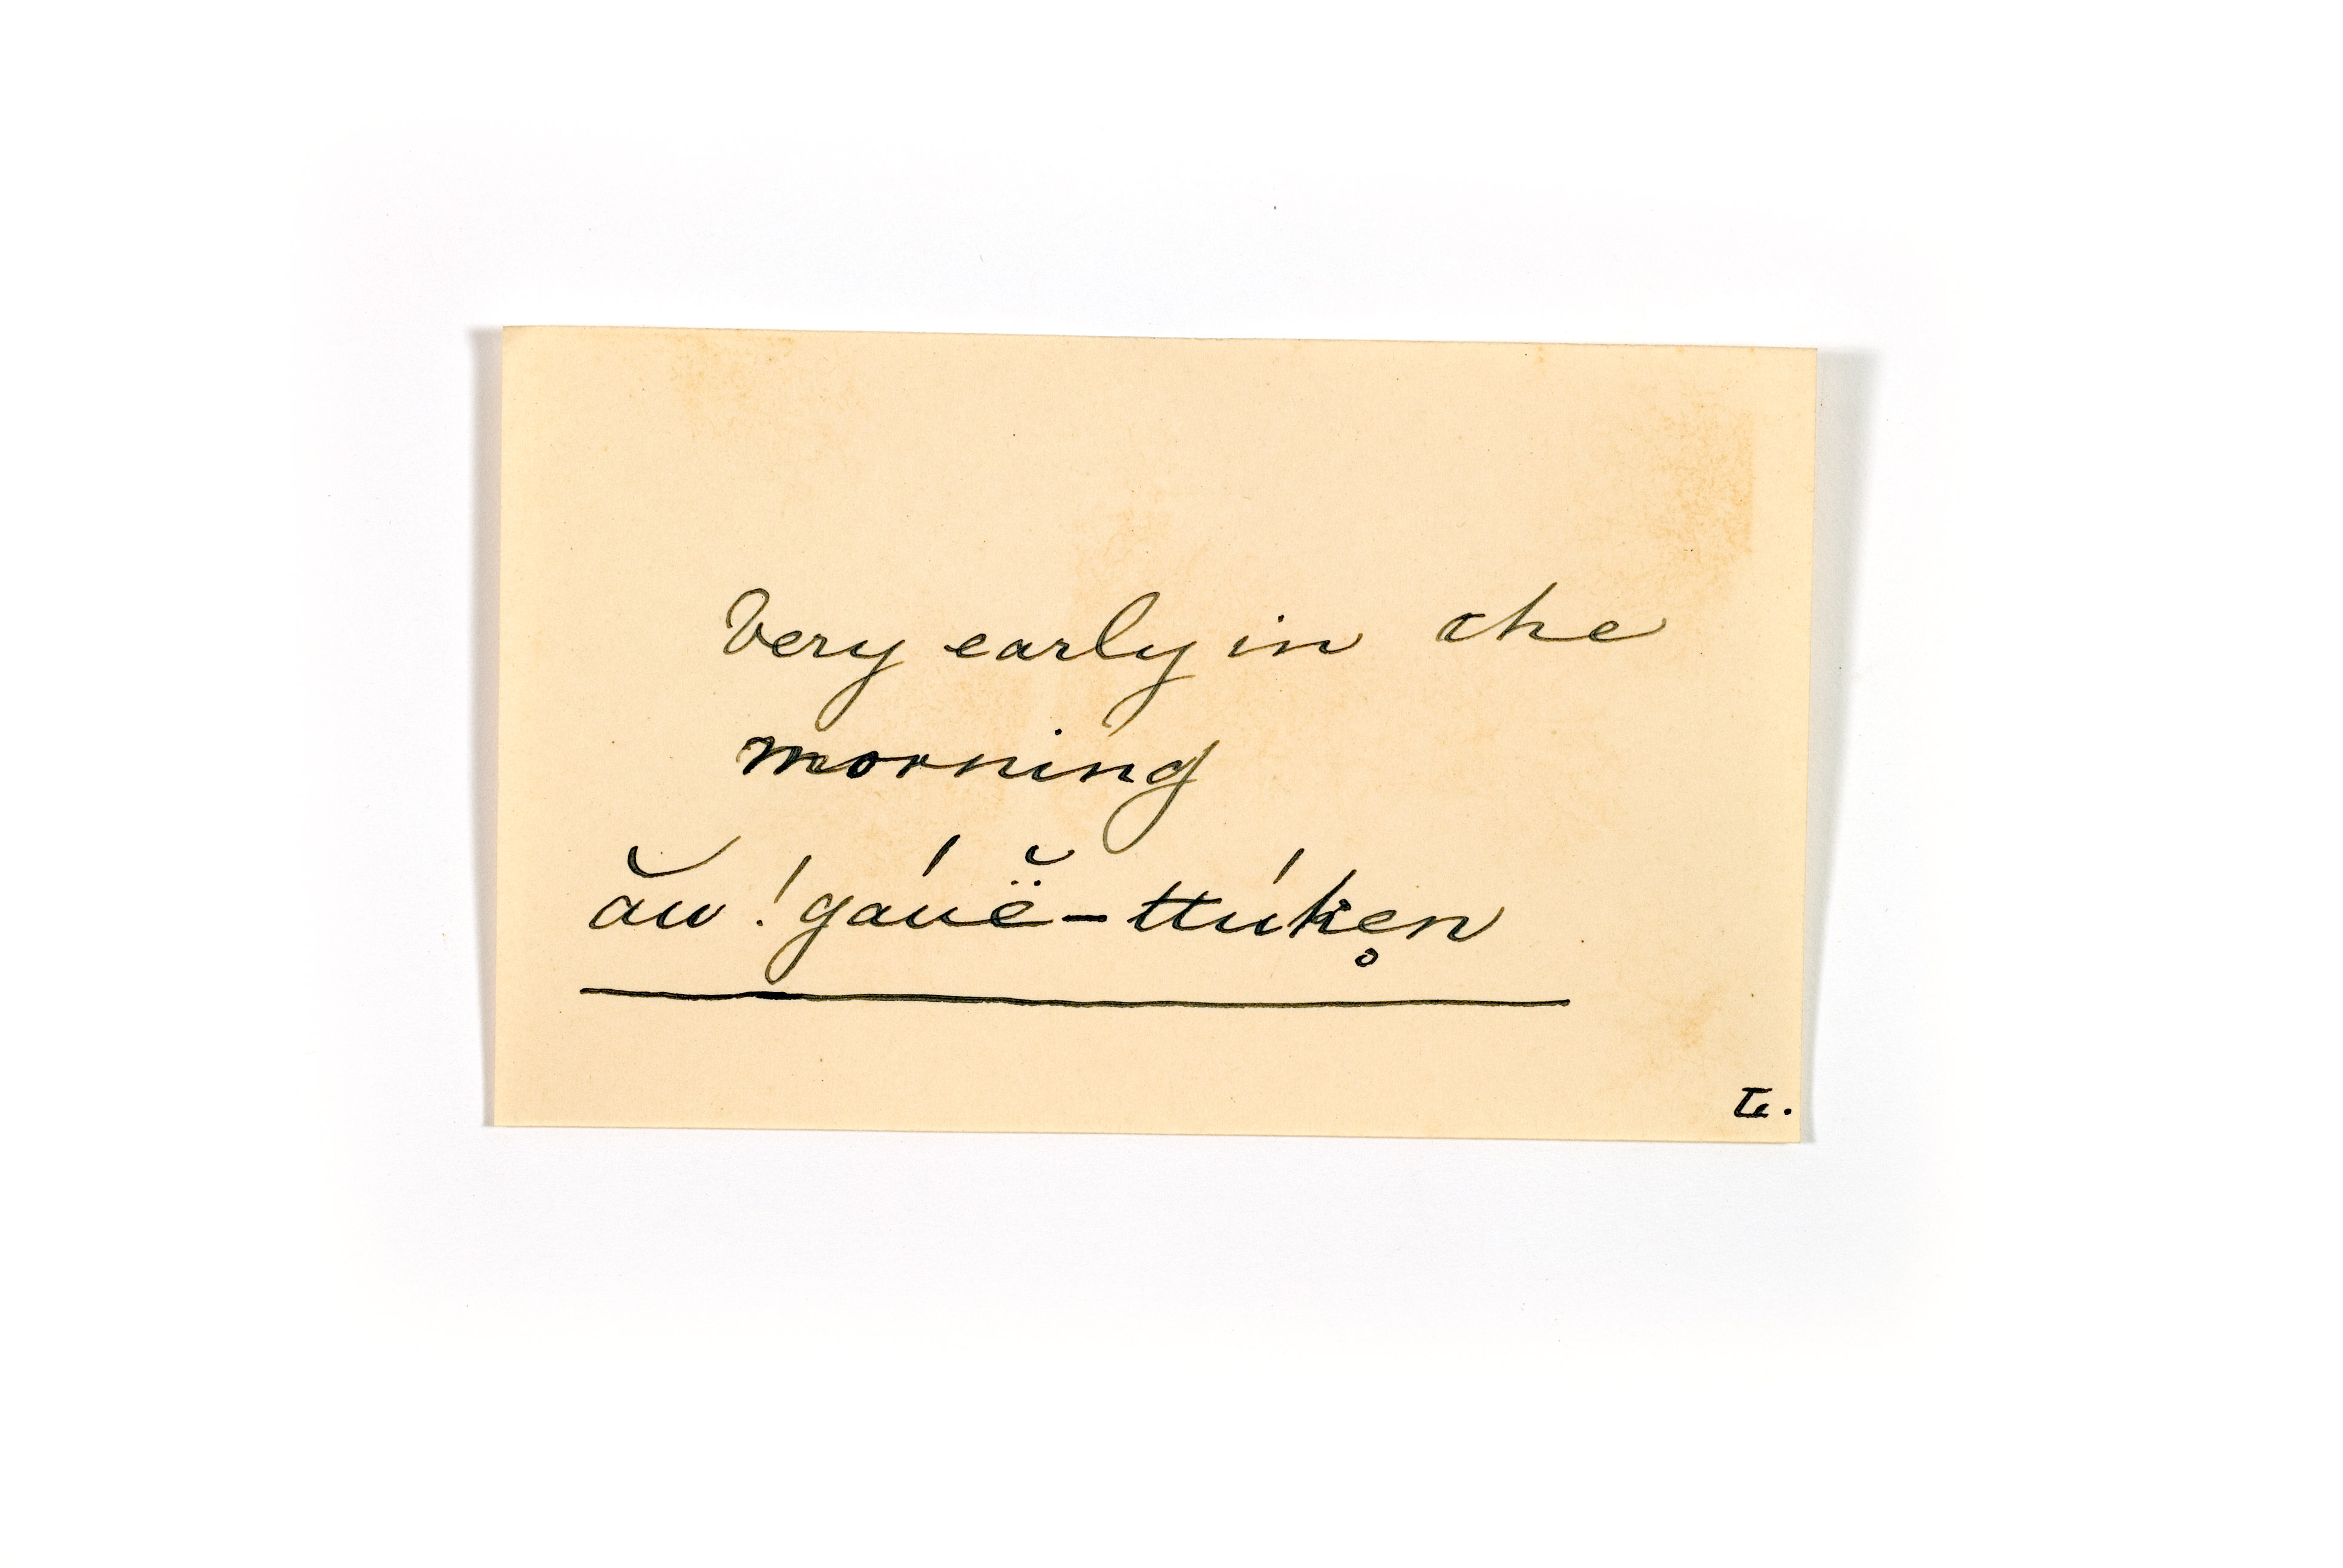 Very early in the
morning
ău !gáuë̆-ttúke̥n
T.